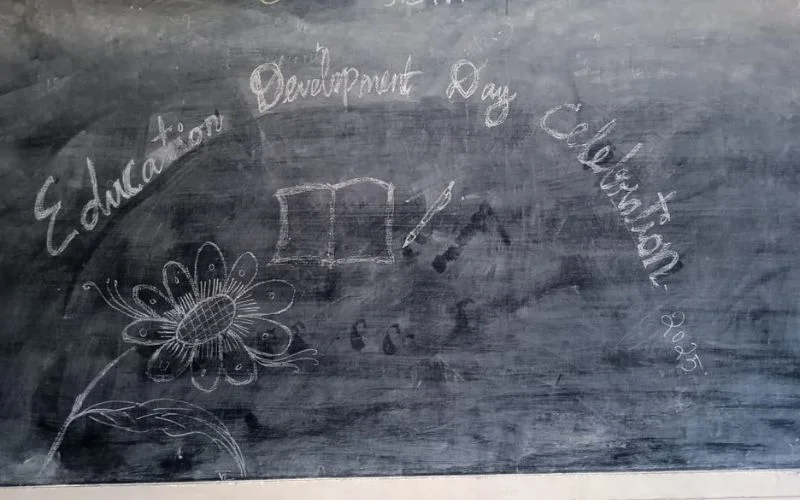 Education Development Day Celebration - 2025